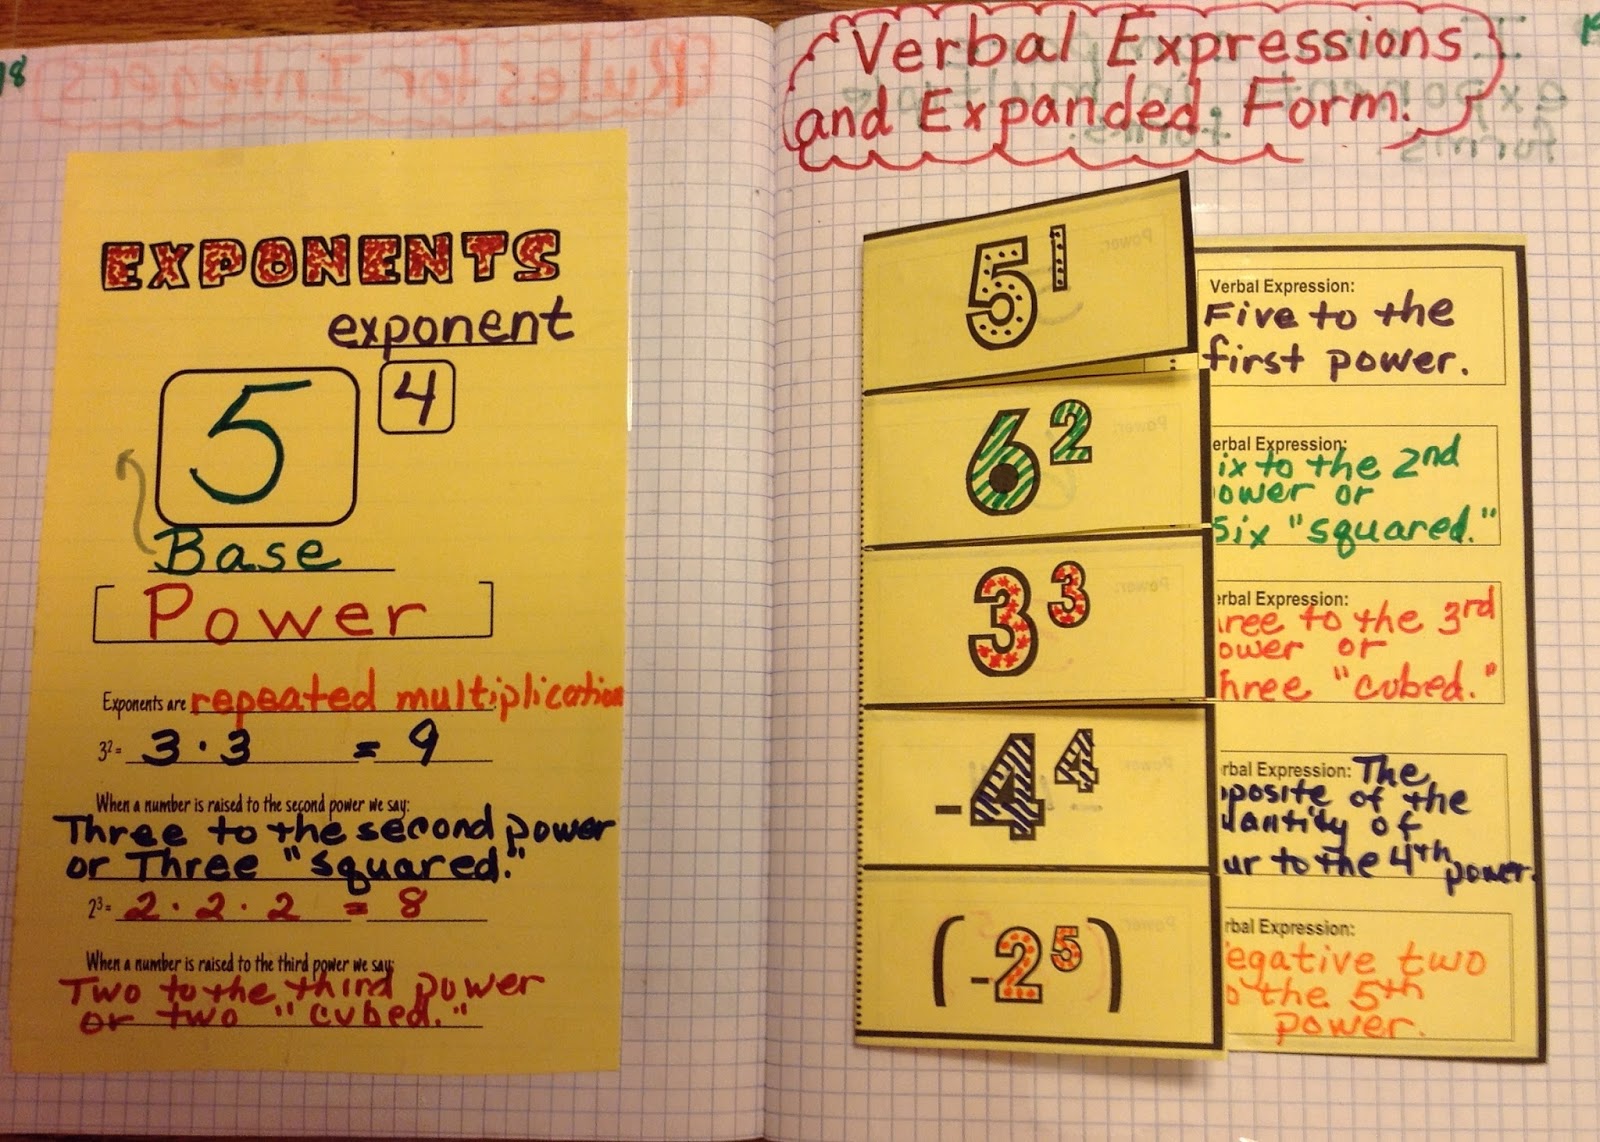 18
Rules for Integers
EXPONENTS
exponent
5
4
Base
Power
Exponents are repeated multiplication
3² = 3 · 3 = 9
When a number is raised to the second power we say:
Three to the second power
or Three "squared."
2³ = 2 · 2 · 2 = 8
When a number is raised to the third power we say:
Two to the third power
or two "cubed."
Verbal Expressions
and Expanded Form.
5¹
Verbal Expression:
Five to the
first power.
6²
erbal Expression:
ix to the 2nd
ower or
Six "squared."
3³
erbal Expression:
hree to the 3rd
ower or
hree "cubed."
-4⁴
rbal Expression: The
pposite of the
uantity of
ur to the 4th power.
(-2⁵)
rbal Expression:
egative two
o the 5th
power.